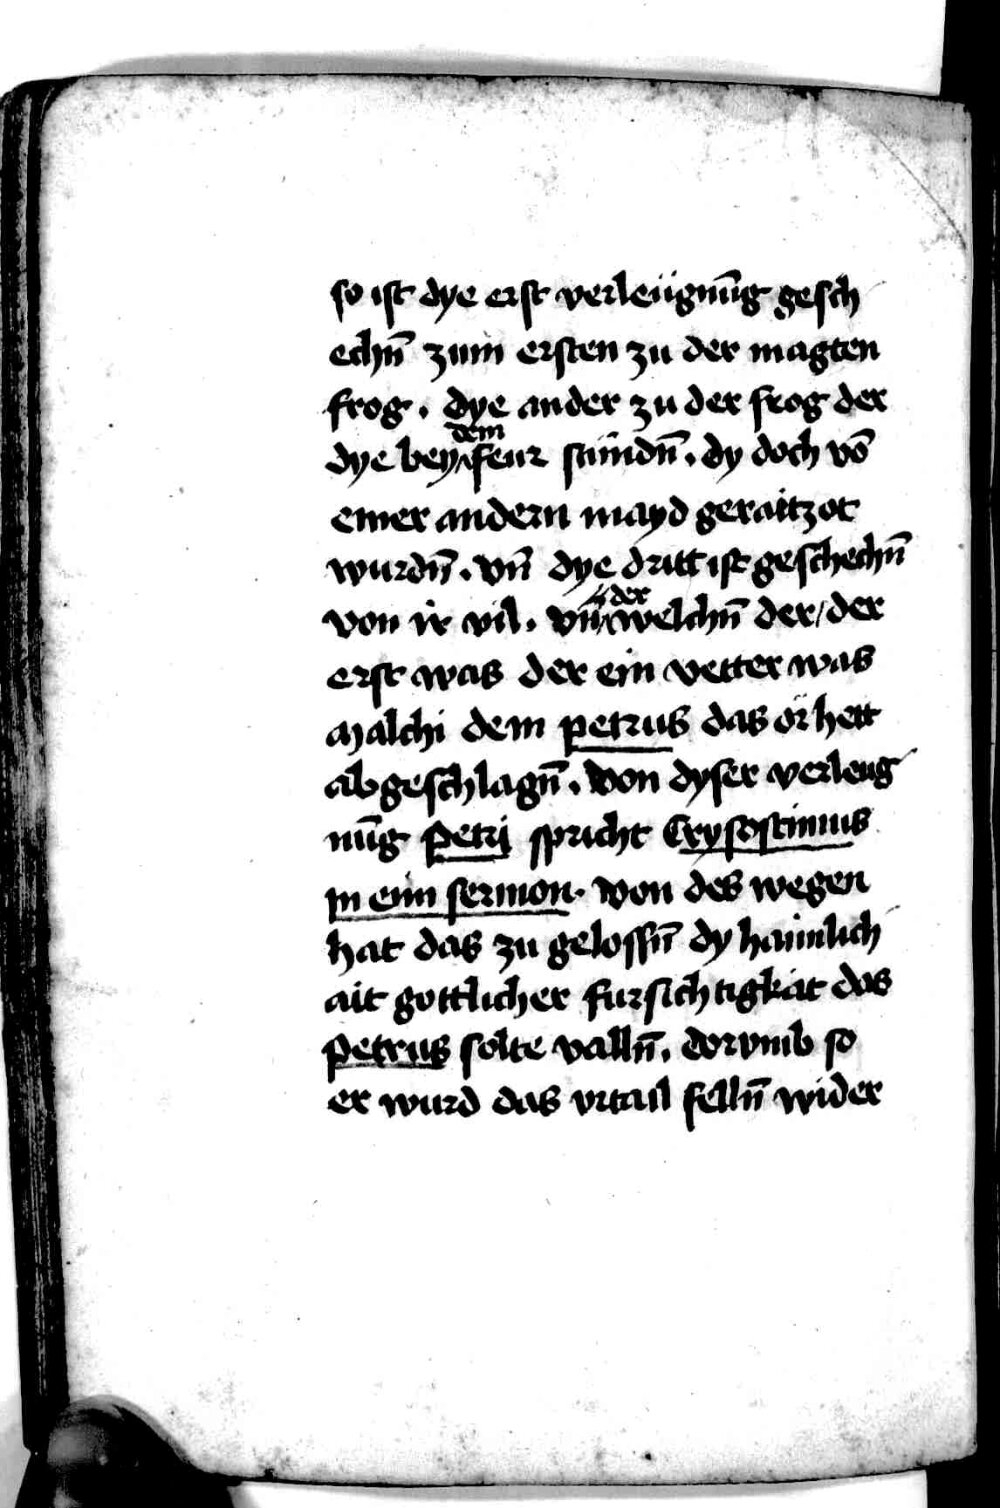 so ist dye erst verleügnūg gesch
echn̄ zum ersten zu der magten
frog . dye ander zu der frog der
dye bey dem feur stündn̄ . dy doch vō
einer andern mayd geraitzot
wurdn̄ . vn̄ dye dritt ist geschechn̄
von ir vil . vn̄ der welchn̄ der / der
erst was der ein vetter was
Malchi dem petrus das ör hett
abgeschlagn̄ . von dyser verleug
nūg Petri spricht Crysostimus
in eim sermon . von des wegen
hat das zu gelossn̄ dy haimlich
ait gottlicher fursichtigkait das
Petrus solte valln̄ . dorvmb so
er wurd das vrtail felln̄ wider